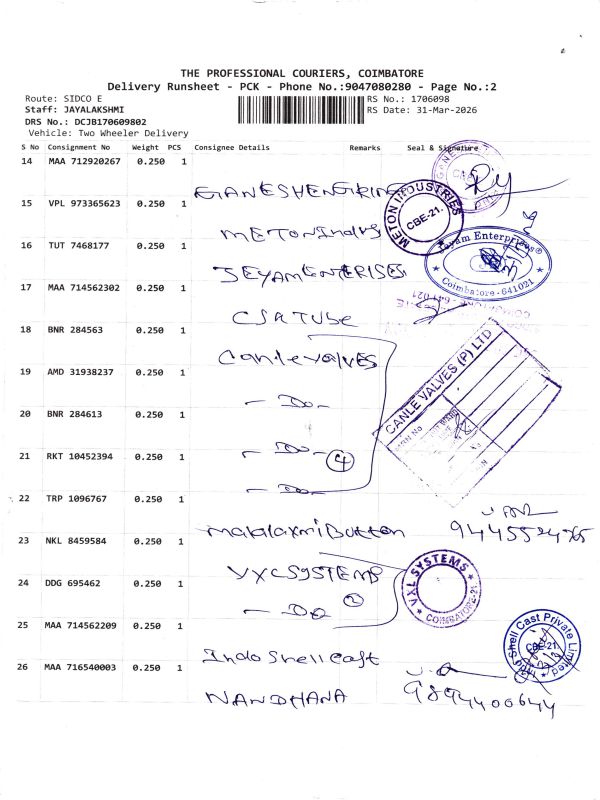 THE PROFESSIONAL COURIERS, COIMBATORE
Delivery Runsheet - PCK - Phone No.:9047080280 - Page No.:2
Route: SIDCO E
RS No.: 1706098
Staff: JAYALAKSHMI
RS Date: 31-Mar-2026
DRS No.: DCJB170609802
Vehicle: Two Wheeler Delivery
S No Consignment No Weight PCS Consignee Details Remarks Seal & Signature
14 MAA 712920267 0.250 1
15 VPL 973365623 0.250 1
METON INDUSTRIES
CBE-21.
16 TUT 7468177 0.250 1
Jeyam Enterprises
Coimbatore-641021
17 MAA 714562302 0.250 1
CSR TUbe
18 BNR 284563 0.250 1
Canle valves
CANLE VALVES (P) LTD
19 AMD 31938237 0.250 1
- Do -
20 BNR 284613 0.250 1
- Do -
4
21 RKT 10452394 0.250 1
- Do -
22 TRP 1096767 0.250 1
Button
23 NKL 8459584 0.250 1
VXL SYSTEMS
VXL SYSTEMS
COIMBATORE-21
24 DDG 695462 0.250 1
- Do
2
25 MAA 714562209 0.250 1
Indo Shell Cast
Indo Shell Cast Private Limited
CBE-21.
26 MAA 716540003 0.250 1
NANDHANA
9894400644